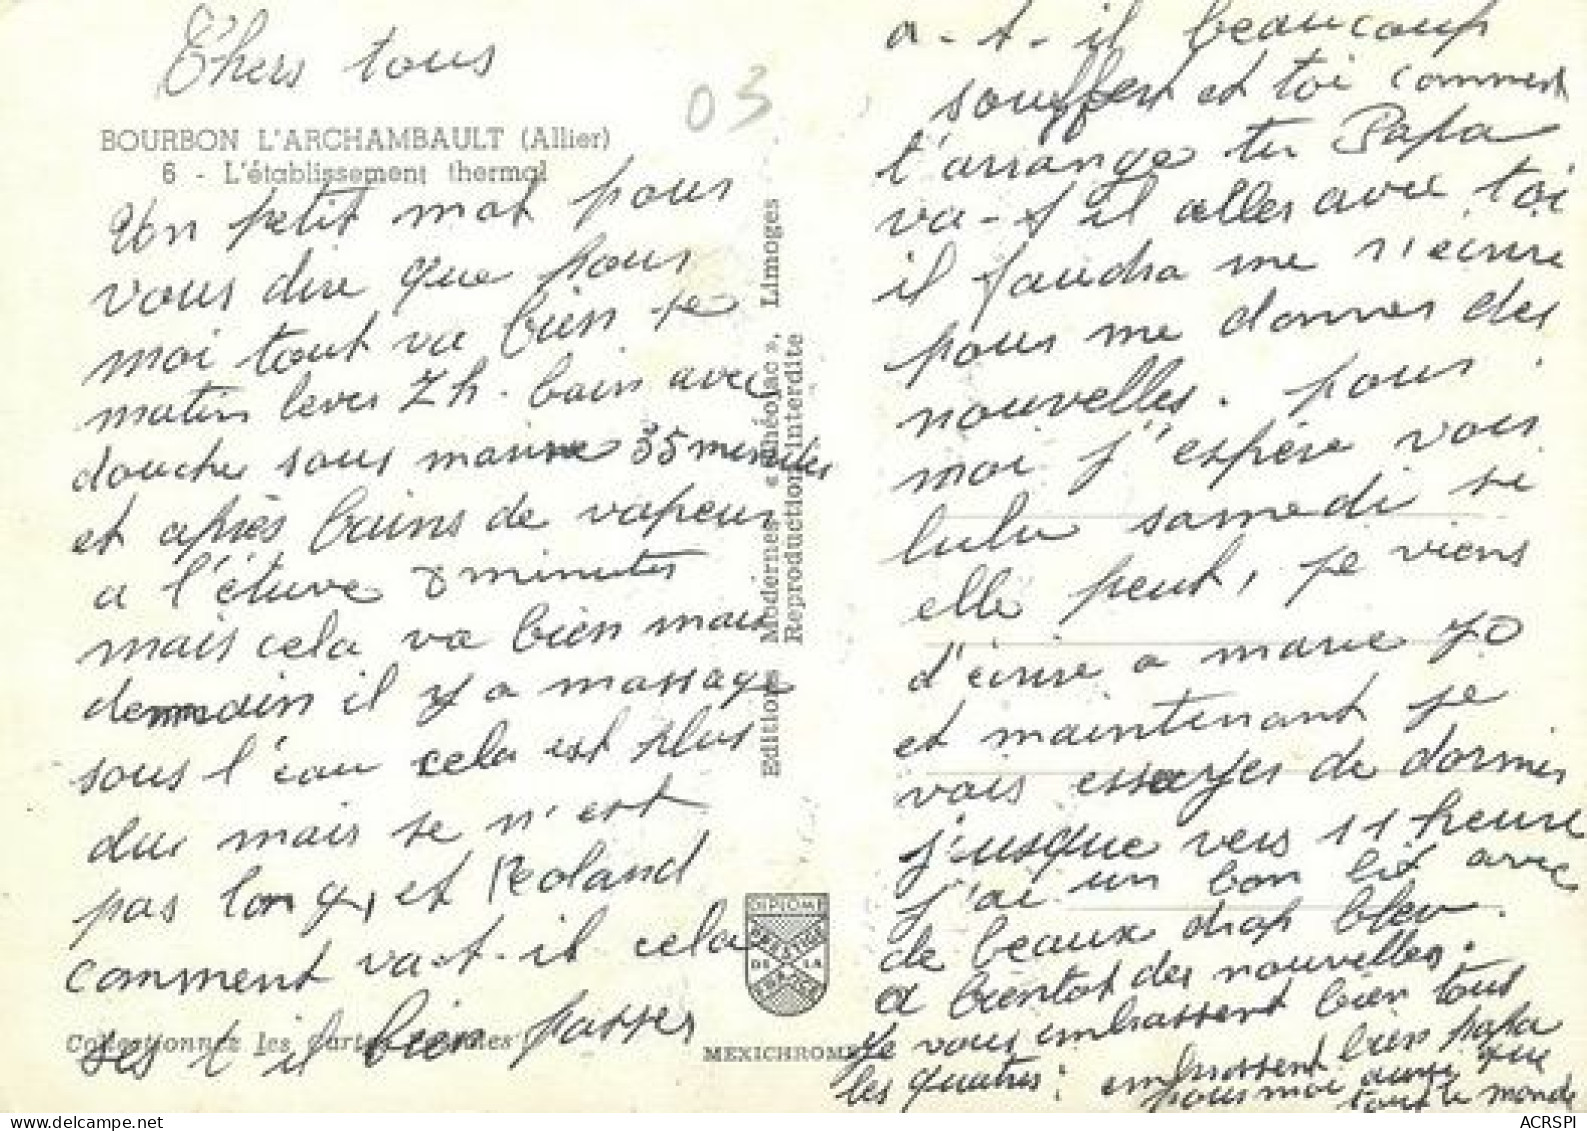 Chers tous
03
BOURBON L'ARCHAMBAULT (Allier)
6 - L'établissement thermal
Un petit mot pour
vous dire que pour
moi tout va bien - se
matin lever 7h. bain avec
douche sous marine 35 minutes
et après bains de vapeur
a l'étuve 8 minutes
mais cela va bien mais
demain il y a massage
sous l'eau cela est plus
dur mais se n'est
pas long, et Roland
comment vat-il cela
ses t'il bien passer
Collectionnez les Cartes
Editions Modernes « Théojac », Limoges
Reproduction interdite
DIPLOME
PRESTIGE
DE LA
FRANCE
MEXICHROME
a-t-il beaucoup
souffert et toi comment
t'arrange tu Papa
va-t il aller avec toi
il faudra me r'écrire
pour me donner des
nouvelles. pour
moi j'espère voir
lulu samedi si
elle peut, je viens
d'écrire a marie jo
et maintenant je
vais essayer de dormir
j'usque vers 11 heure
j'ai un bon lit avec
de beaux drap bleu.
a bientot des nouvelles.
je vous embrassent bien tous
les quatres: embrassent bien papa
pour moi aussi que
tout le monde
ACRSPI